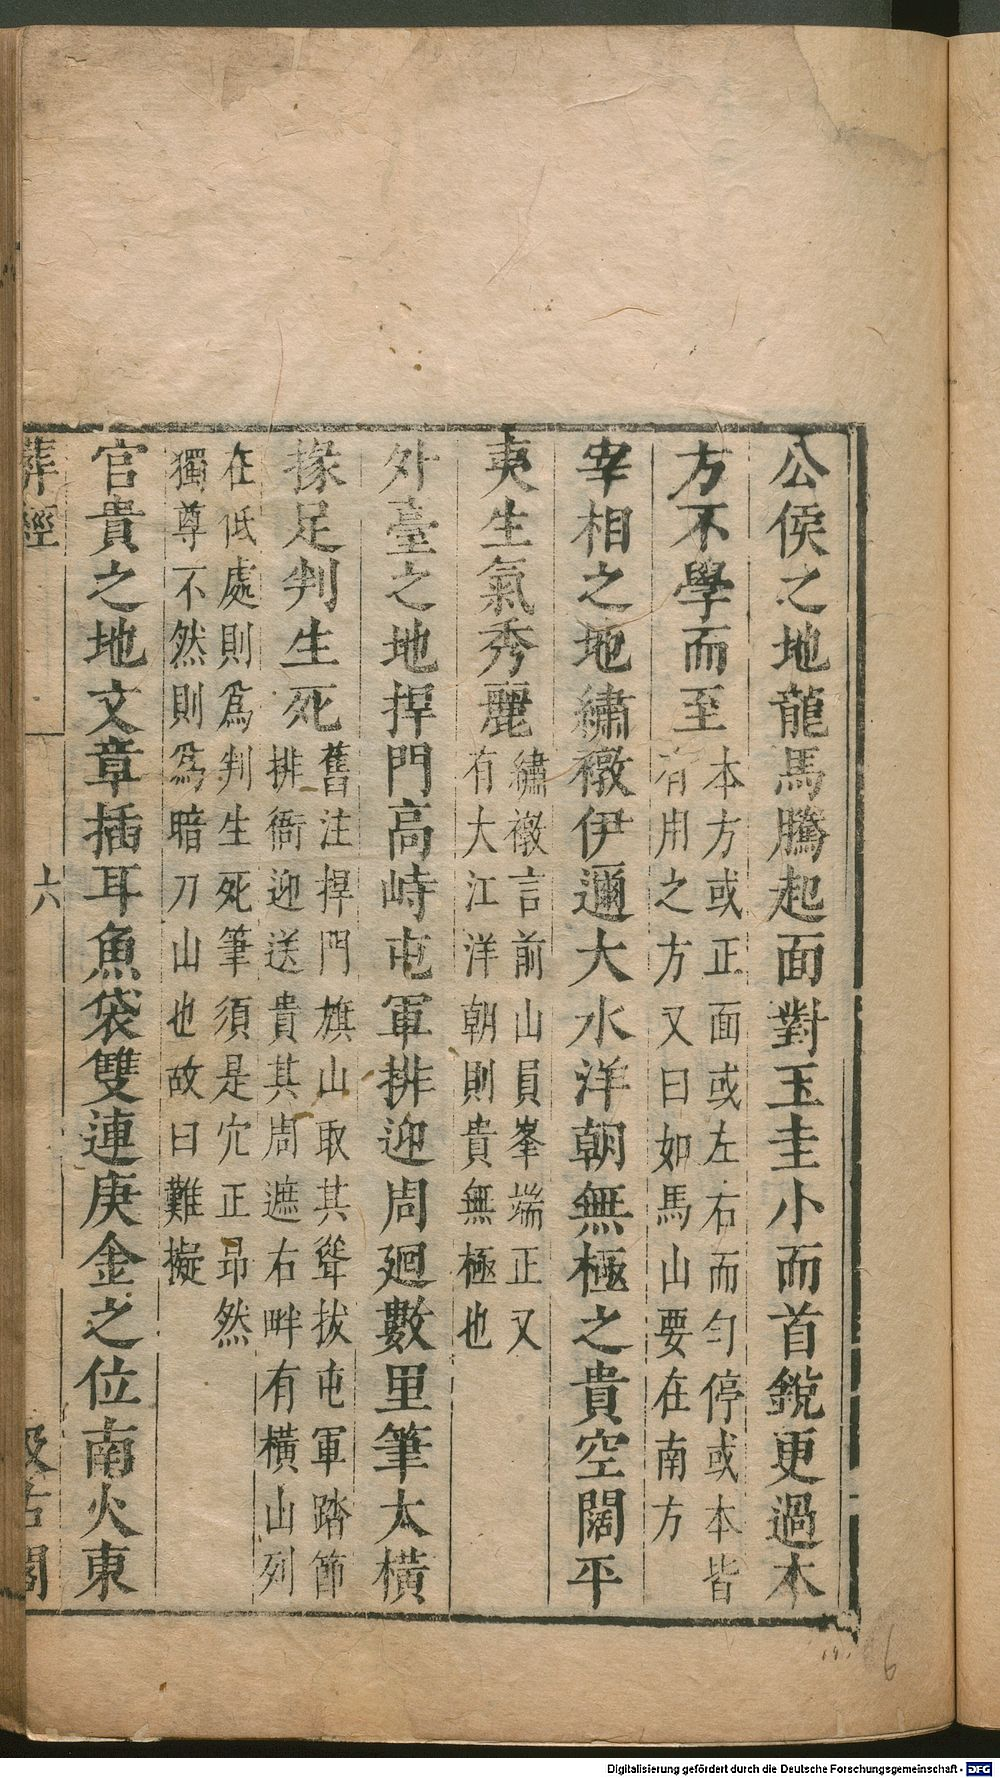 公侯之地龍馬騰起面對玉圭小而首銳更過本
方不學而至
本方或正面或左右而勻停或本皆
有用之方又曰如馬山要在南方
宰相之地繡襒伊邇大水洋朝無極之貴空闊平
夷生氣秀麗
繡襒言前山員峯端正又
有大江洋朝則貴無極也
外臺之地捍門高峙屯軍排迎周廻數里筆大橫
掾足判生死
舊注捍門旗山取其聳拔屯軍踏節
排衙迎送貴其周遮右畔有橫山列
在低處則爲判生死筆須是穴正昻然
獨尊不然則爲暗刀山也故曰難擬
官貴之地文章插耳魚袋雙連庚金之位南火東
葬經
六
汲古閣
6
Digitalisierung gefördert durch die Deutsche Forschungsgemeinschaft - DFG